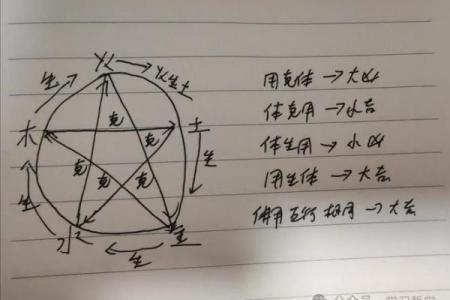 火
生
火生土
木
土
克
克
克
克
克
生
生
水
金
生
用克体→大凶
体克用→小吉
体生用→小凶
用生体→大吉
体用五行相同→大吉
公众号